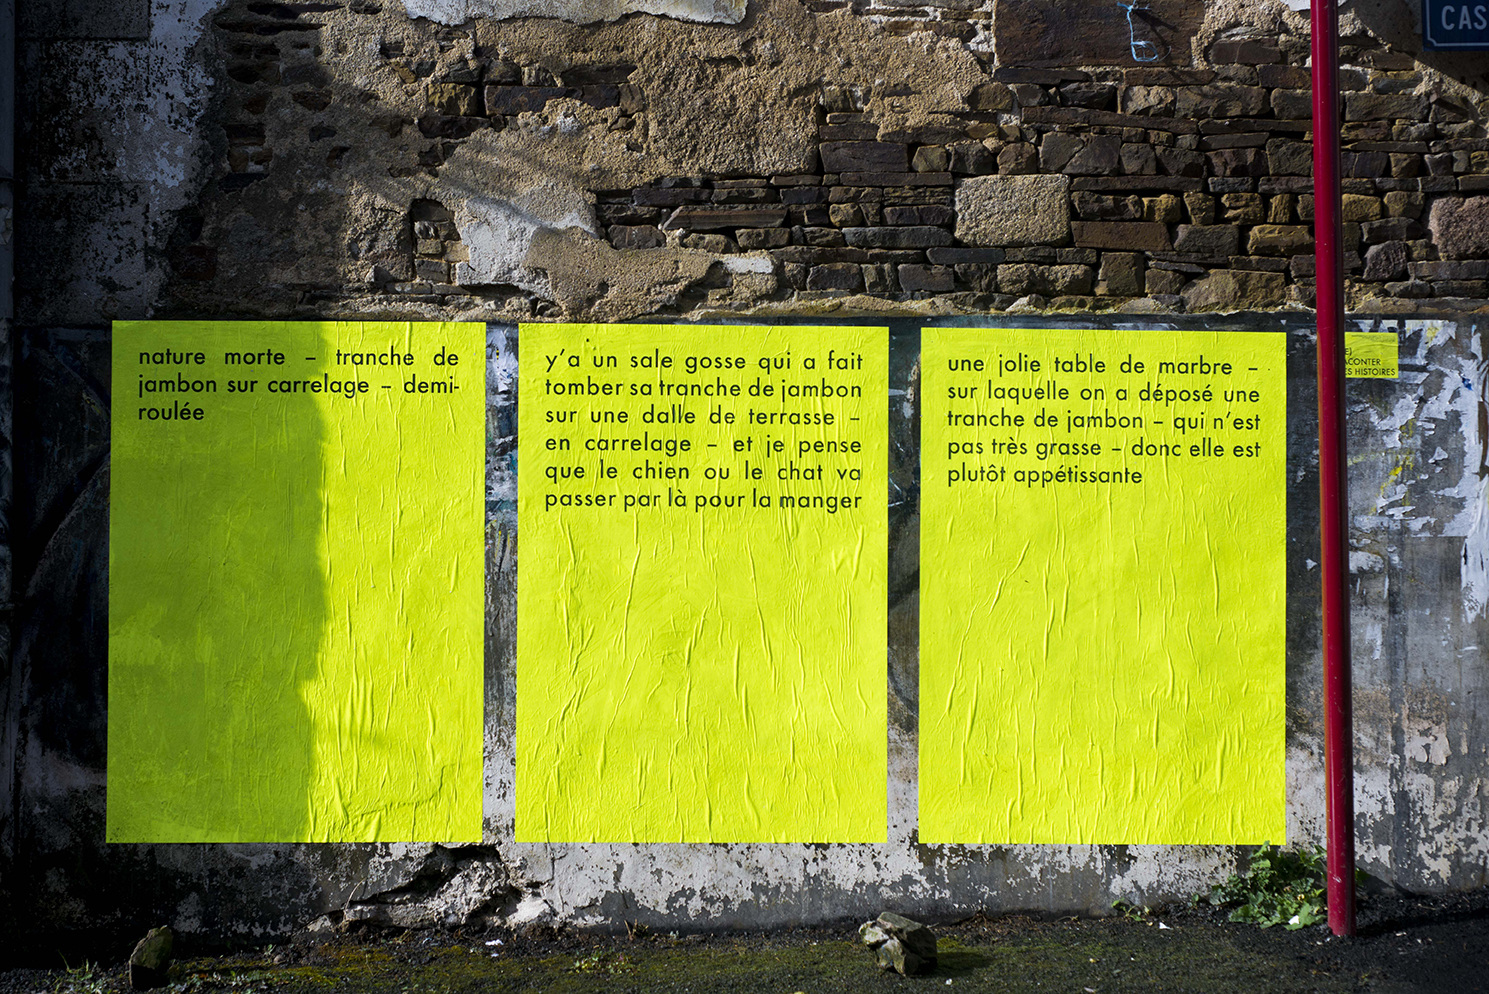 nature morte – tranche de
jambon sur carrelage – demi-
roulée
y'a un sale gosse qui a fait
tomber sa tranche de jambon
sur une dalle de terrasse –
en carrelage – et je pense
que le chien ou le chat va
passer par là pour la manger
une jolie table de marbre –
sur laquelle on a déposé une
tranche de jambon – qui n'est
pas très grasse – donc elle est
plutôt appétissante
HISTOIRES
CAS